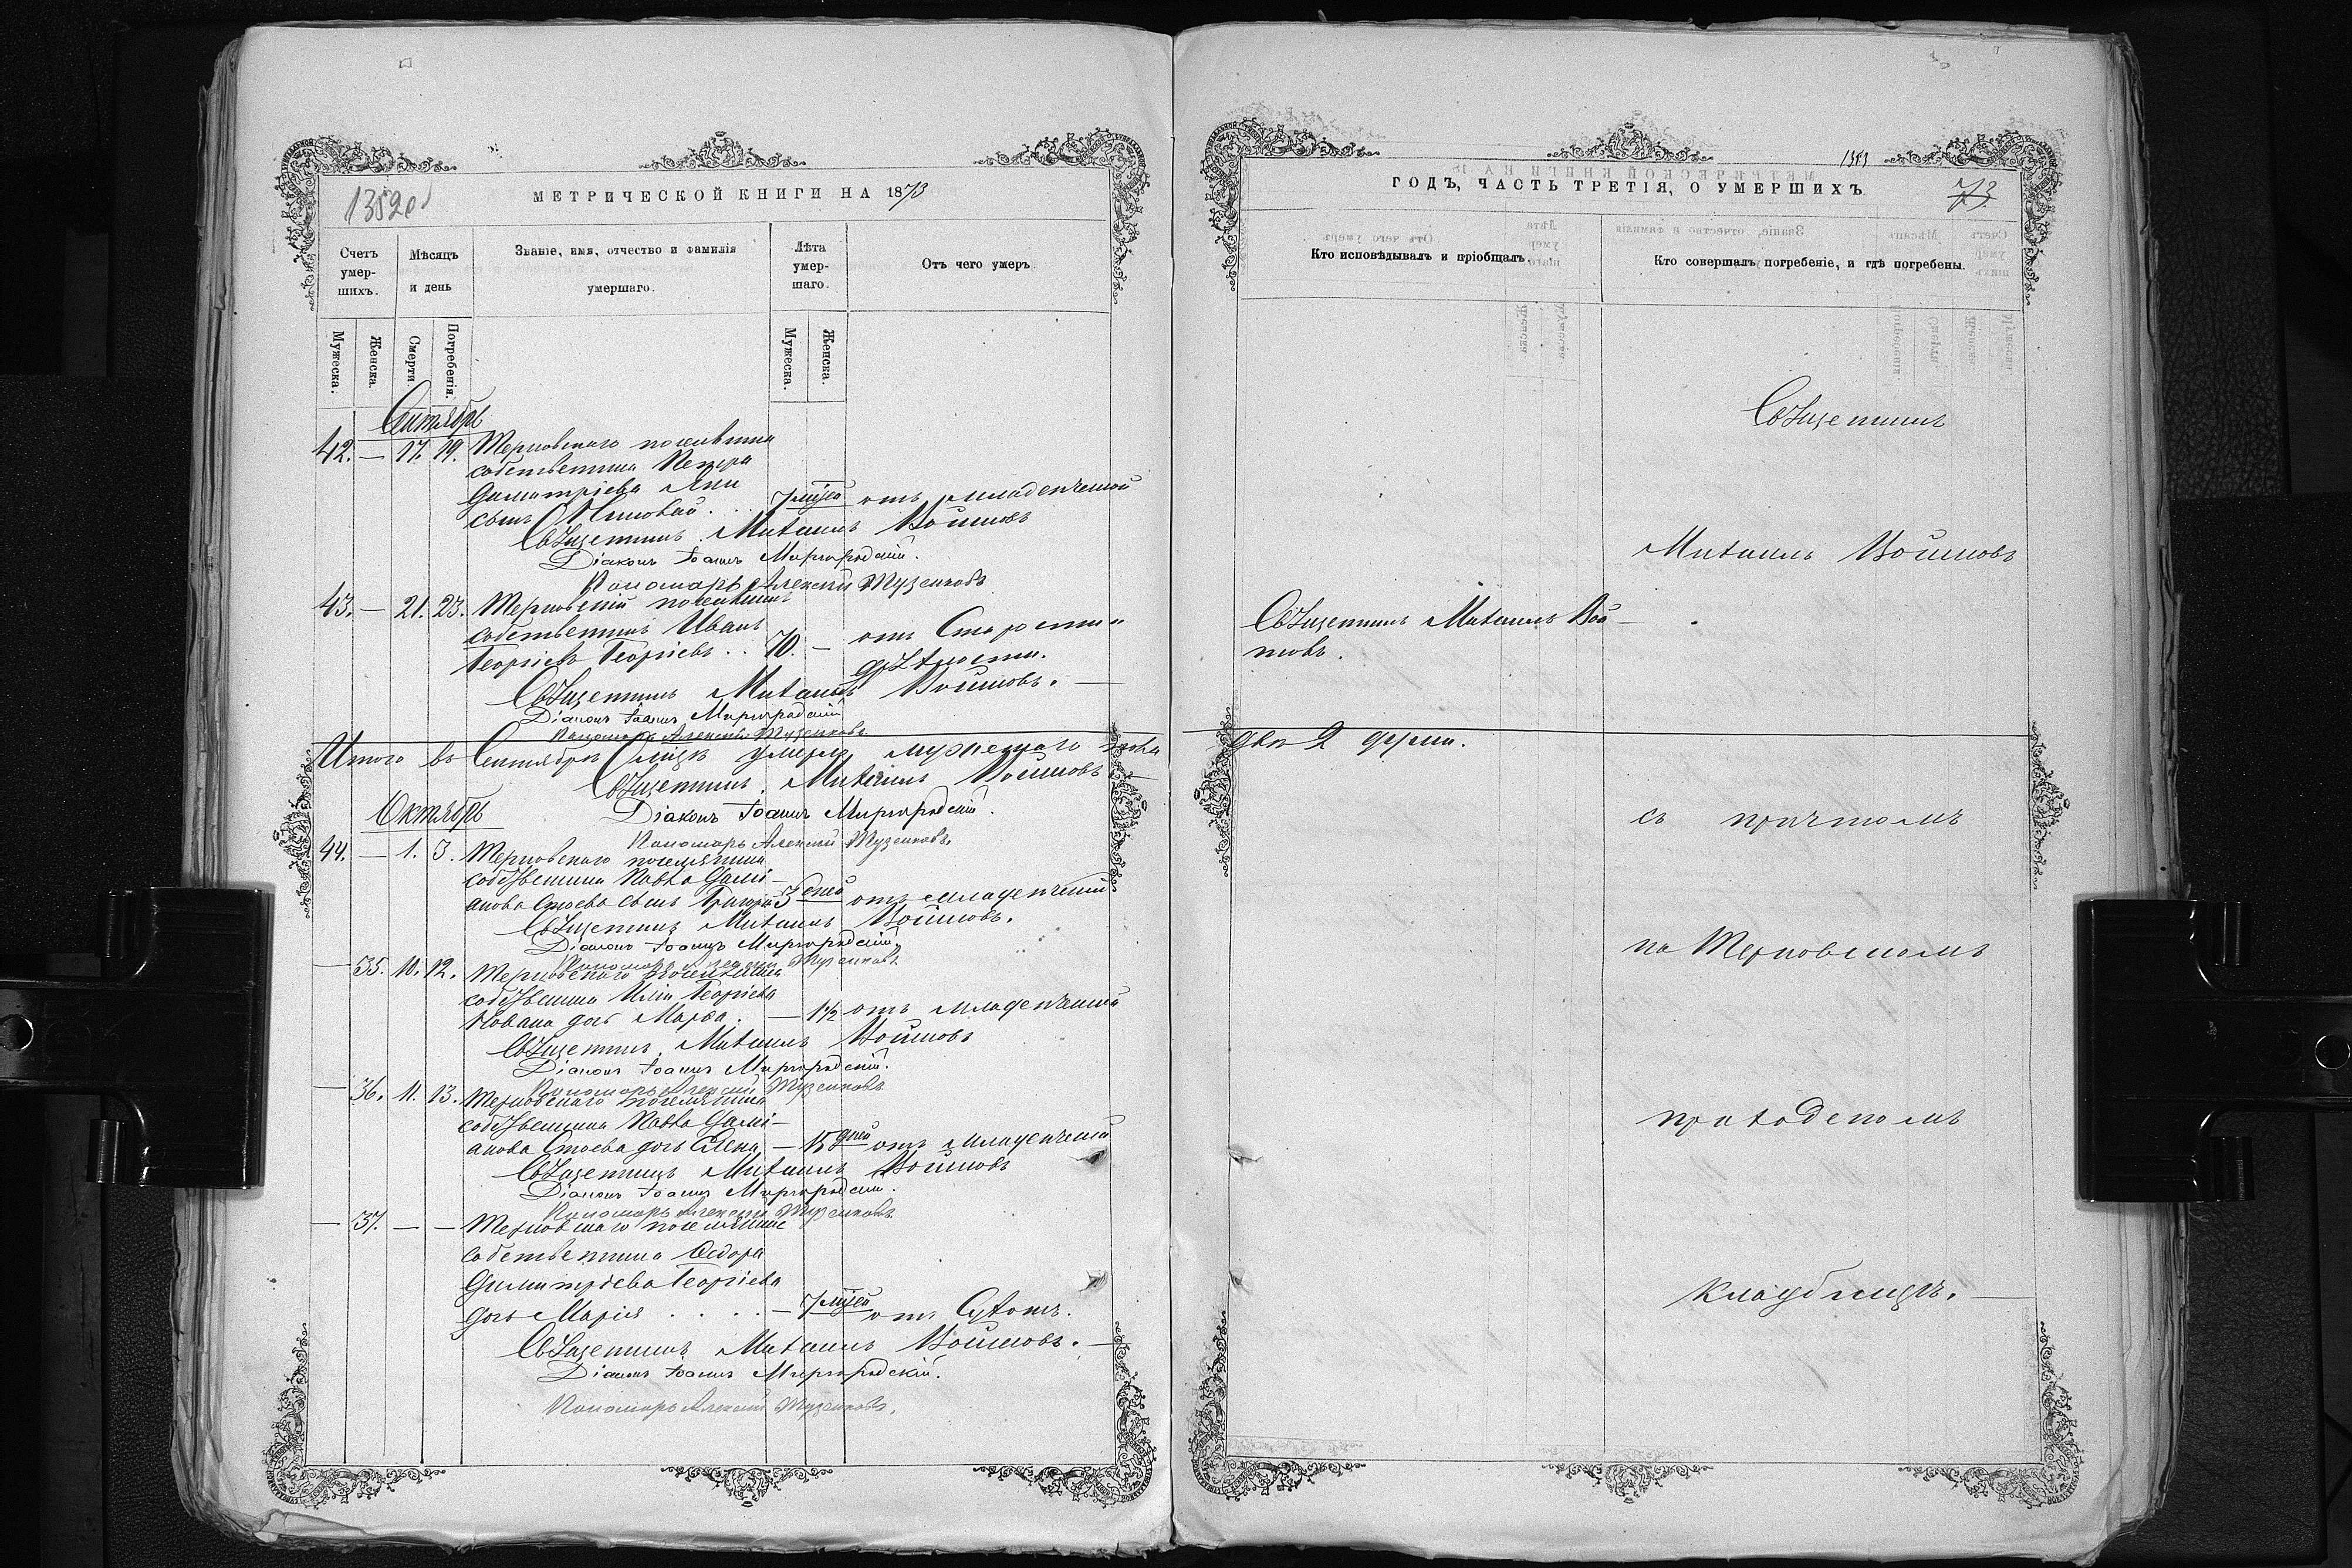 1352об
МЕТРИЧЕСКОЙ КНИГИ НА 1873
Счетъ умер-шихъ.
Мѣсяцъ и день
Званіе, имя, отчество и фамилія умершаго.
Лѣта умер-шаго.
Отъ чего умеръ
Мужеска.
Женска.
Смерти.
Погребенія.
Мужеска.
Женска.
Сентябрь
42. — 17. 19. Терновскаго поселянина
собственника Петра
Димитріева Яни
сынъ . . 7 мцей отъ младенческой
Священникъ Михаилъ Войновъ
Діаконъ Іоаннъ Миргородскій.
Пономарь Алексій Тузенковъ
43. — 21. 23. Терновскій поселянинъ
собственникъ Иванъ
Георгіевъ Георгіевъ . . 70. — отъ Старости и
дряхлости.
Священникъ Михаилъ Войновъ. —
Діаконъ Іоаннъ Миргородскій
Пономарь Алексій Тузенковъ
Итого въ Сентябрѣ мцѣ умерло мужескаго пола
Священникъ Михаилъ Войновъ —
Діаконъ Іоаннъ Миргородскій.
Пономарь Алексій Тузенковъ.
Октябрь
44. — 1. 3. Терновскаго поселянина
собственника Павла Дамі-
анова Стоева сынъ Григорій 3 дней отъ младенческой
Священникъ Михаилъ Войновъ.
Діаконъ Іоаннъ Миргородскій
Пономарь Алексій Тузенковъ
— 35. 10. 12. Терновскаго поселянина
собственника Иліи Георгіева
Новака дочь Марѳа. — 1½ отъ младенческой
Священникъ Михаилъ Войновъ
Діаконъ Іоаннъ Миргородскій.
Пономарь Алексій Тузенковъ
— 36. 11. 13. Терновскаго поселянина
собственника Павла Дамі-
анова Стоева дочь Елена — 15 дней отъ младенческой
Священникъ Михаилъ Войновъ
Діаконъ Іоаннъ Миргородскій.
Пономарь Алексій Тузенковъ
— 37. — — Терновскаго поселянина
собственника Ѳедора
Димитріева Георгіева
дочь Марія . . . . — 7 мцей отъ Сухотъ.
Священникъ Михаилъ Войновъ. —
Діаконъ Іоаннъ Миргородскій.
Пономарь Алексій Тузенковъ.
1353
ГОДЪ, ЧАСТЬ ТРЕТІЯ, О УМЕРШИХЪ.
73
Кто исповѣдывалъ и пріобщалъ.
Кто совершалъ погребеніе, и гдѣ погребены.
Священникъ
Михаилъ Войновъ
Священникъ Михаилъ Вой-
новъ.
двѣ 2 души.
съ причтомъ
на Терновскомъ
приходскомъ
кладбищѣ. —